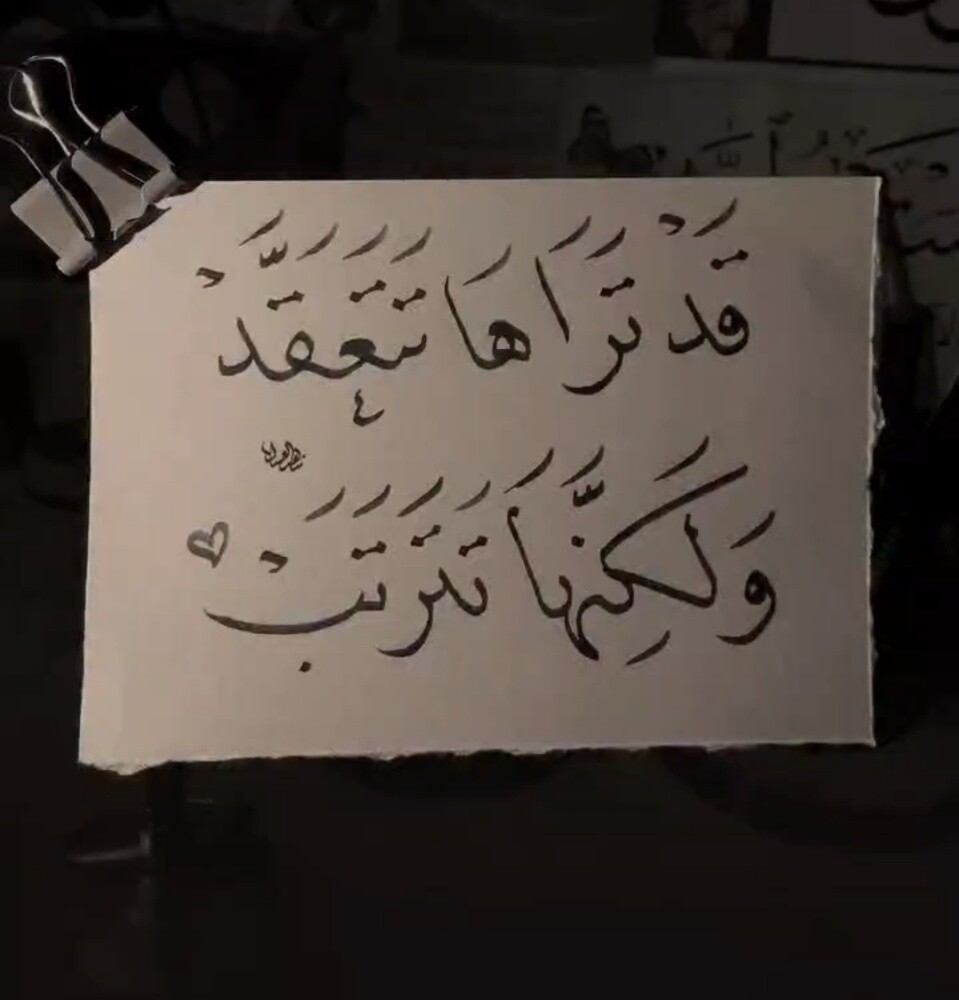 قَدْ تَرَاهَا تَتَعَقَّدْ
وَلَكِنَّهَا تَتَرَتَبْ